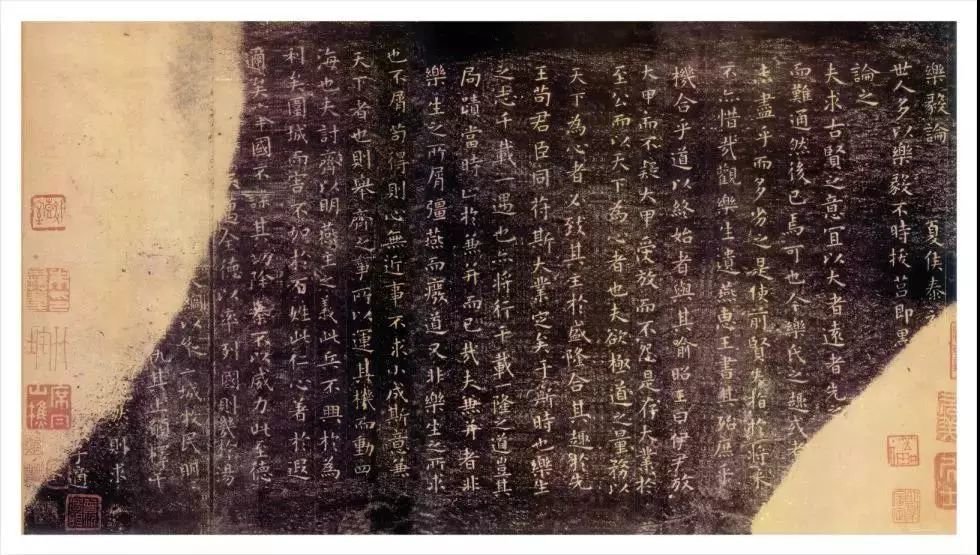 樂毅論 夏侯泰
世人多以樂毅不時拔莒即墨
論之
夫求古賢之意宜以大者遠者先之
而難通然後已焉可也今樂氏之趣或者
盡乎而多劣之是使前賢失指於將來
不亦惜哉觀樂生遺燕惠王書其殆庶乎
機合乎道以終始者與其喻昭王曰伊尹放
大甲而不疑大甲受放而不怨是存大業於
至公而以天下為心者也夫欲極道之量務以
天下為心者必致其主於盛隆合其趣於先
王苟君臣同符斯大業定矣于斯時也樂生
之志千載一遇也亦將行千載一隆之道豈其
局蹟當時止於兼并而已哉夫兼并者非
樂生之所屑彊燕而廢道又非樂生之所求
也不屑苟得則心無近事不求小成斯意兼
天下者也則舉齊之事所以運其機而動四
海也夫討齊以明燕主之義此兵不興於為
利矣圍城而害不加於百姓此仁心著於遐
邇矣國不謀其功除暴不以威力此至德
全德以率列國則幾於湯
以 城牧民明
仇其上願釋干
則求